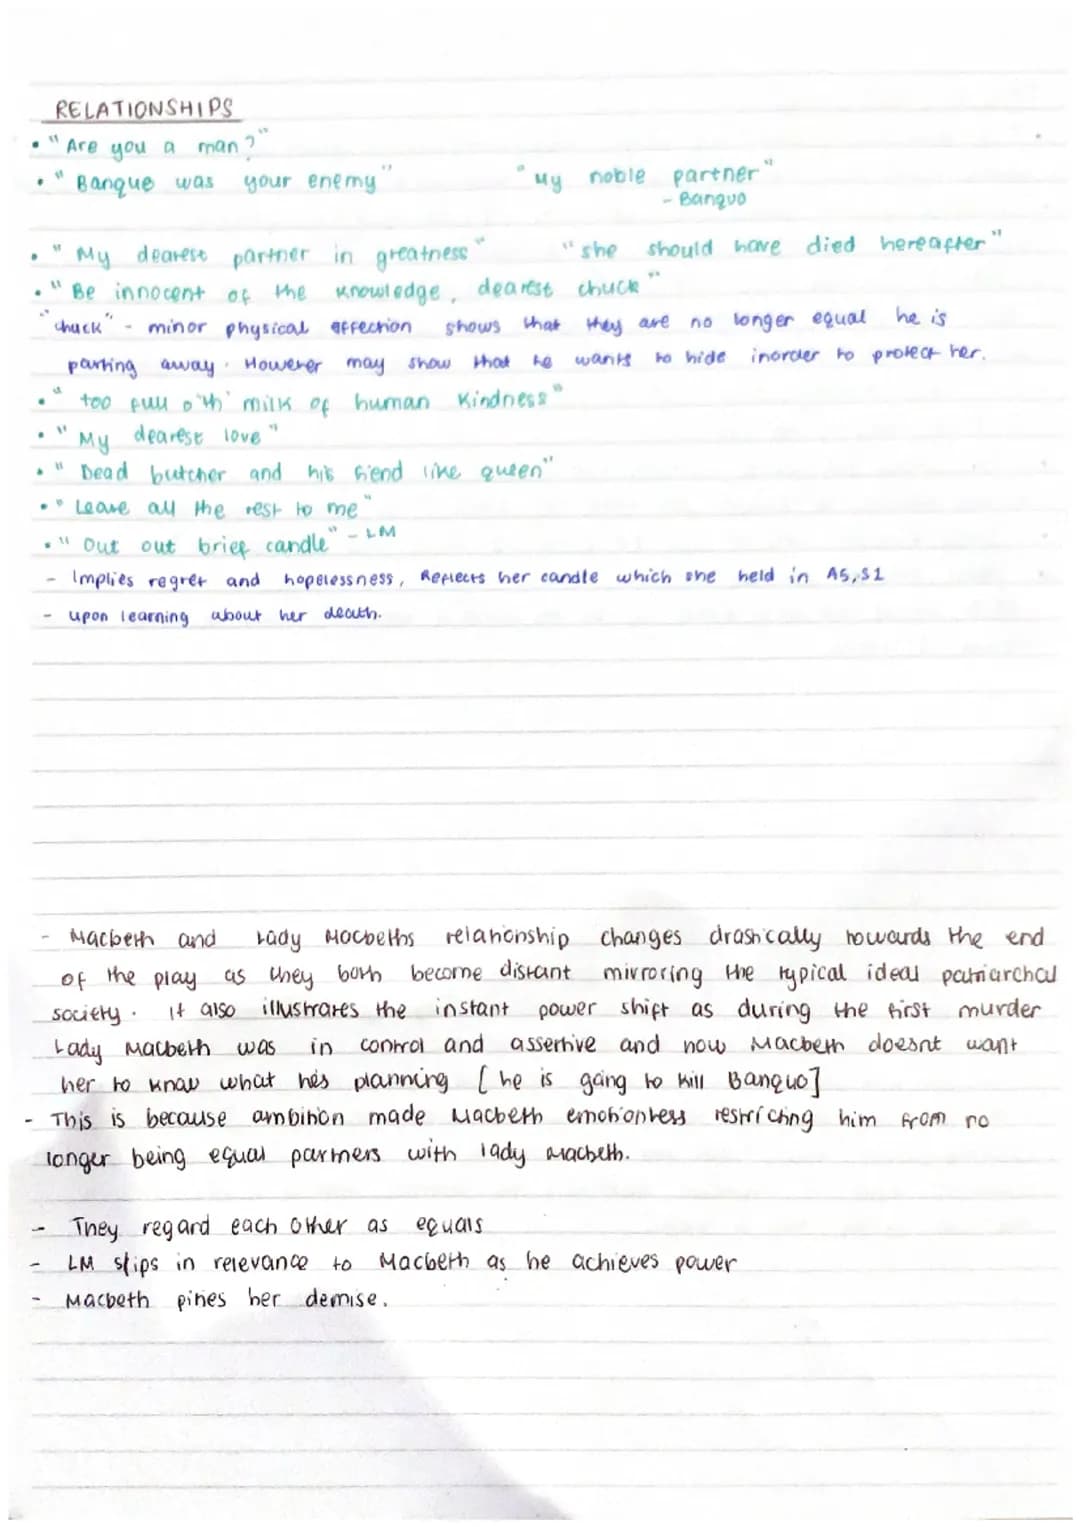 RELATIONSHIPS
• "Are you a man?"
• "Banque was your enemy" "My noble partner"
- Banquo
• "My dearest partner in greatness" "she should have died hereafter"
• "Be innocent of the knowledge, dearest chuck"
"chuck" - minor physical affection shows that they are no longer equal he is
parting away. However may show that he wants to hide inorder to protect her.
• "too full o'th' milk of human kindness"
• "My dearest love"
• "Dead butcher and his fiend like queen"
• "Leave all the rest to me"
• "Out out brief candle" - LM
- Implies regret and hopelessness, Reflects her candle which she held in A5,S1
- upon learning about her death.
- Macbeth and Lady Macbeths relationship changes drastically towards the end
of the play as they both become distant mirroring the typical ideal patriarchal
society. It also illustrates the instant power shift as during the first murder
Lady Macbeth was in control and assertive and now Macbeth doesnt want
her to know what hes planning [he is going to kill Banquo]
- This is because ambition made Macbeth emotionless restricting him from no
longer being equal partners with lady Macbeth.
- They regard each other as equals
- LM slips in relevance to Macbeth as he achieves power
- Macbeth pities her demise.